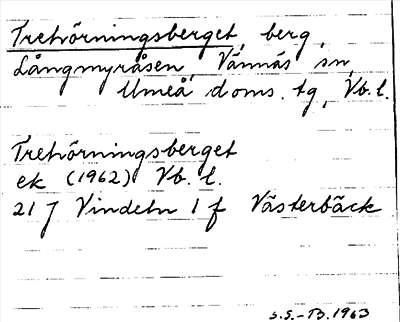 Trehörningsberget, berg,
Långmyråsen, Vännäs sn,
Umeå doms. tg, Vb. l.
Trehörningsberget
ek (1962) Vb. l.
21 J Vindeln 1 f Västerbäck
S.S.-B. 1963